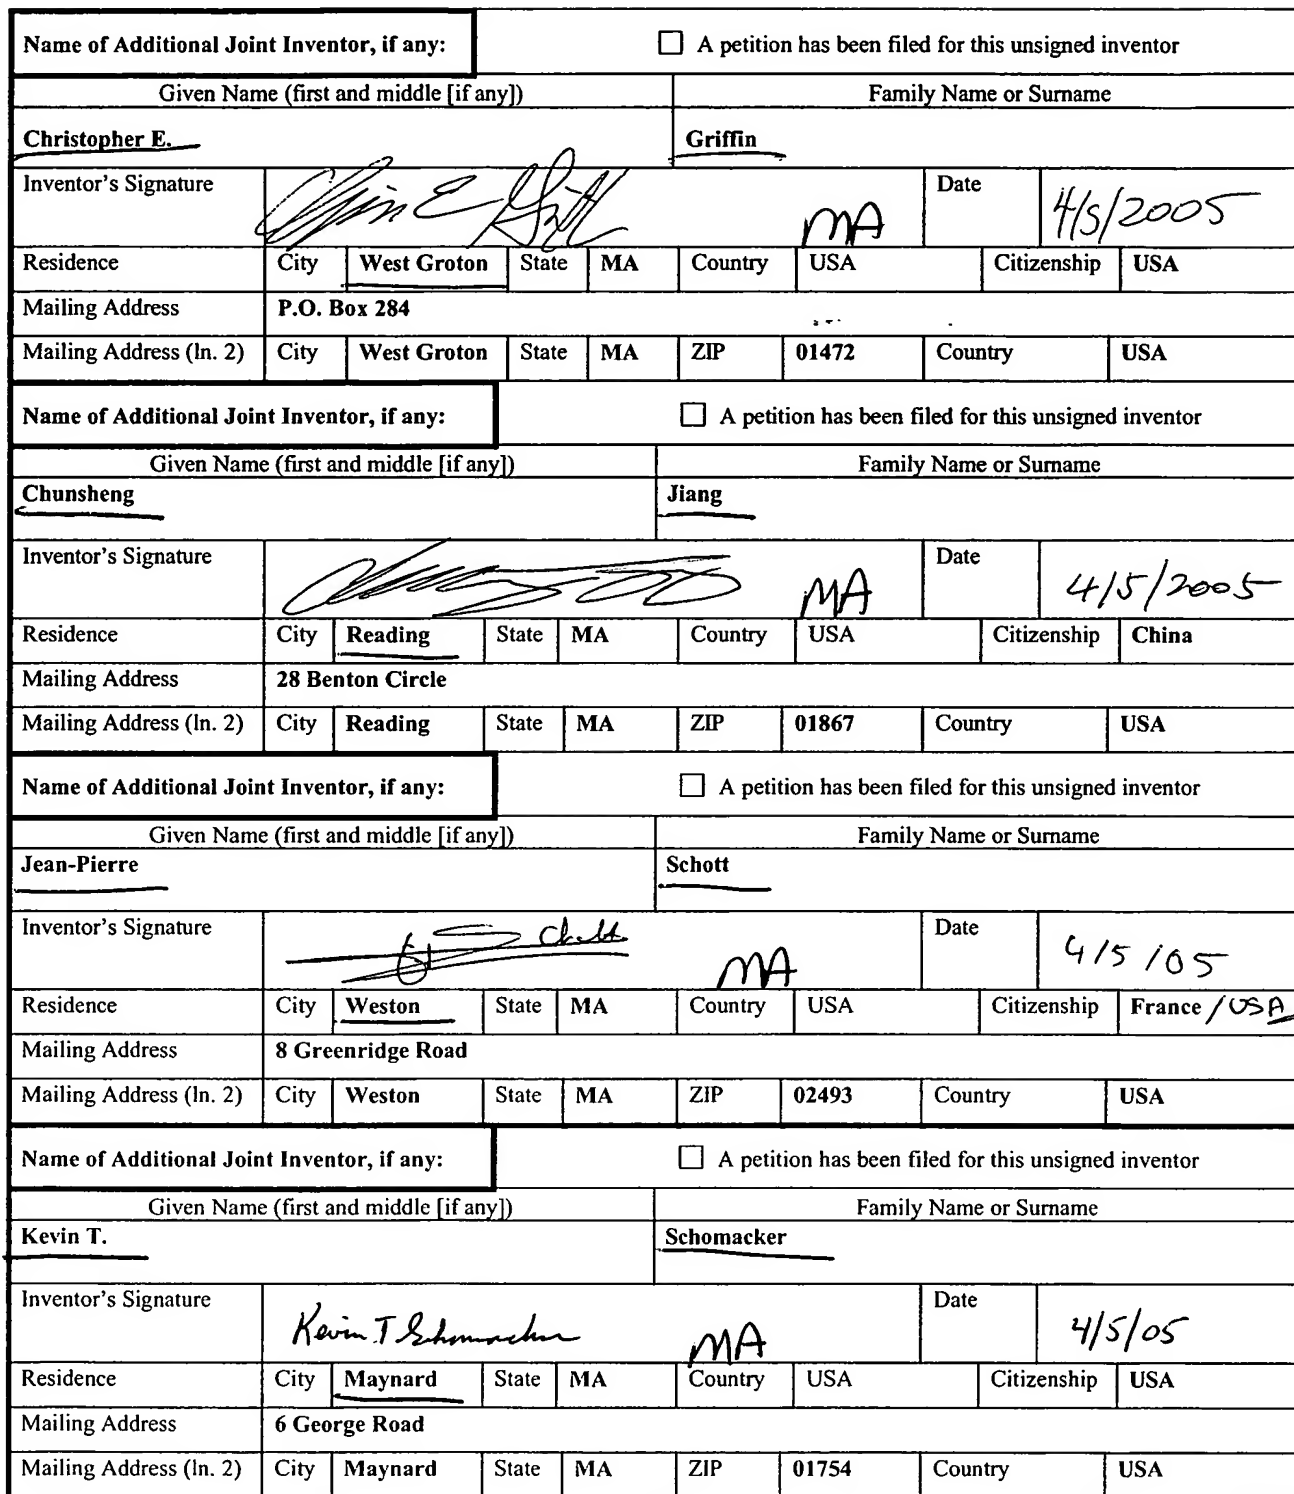 Name of Additional Joint Inventor, if any: ☐ A petition has been filed for this unsigned inventor
Given Name (first and middle [if any]) Family Name or Surname
Christopher E. Griffin
Inventor's Signature MA Date 4/5/2005
Residence City West Groton State MA Country USA Citizenship USA
Mailing Address P.O. Box 284
Mailing Address (ln. 2) City West Groton State MA ZIP 01472 Country USA
Name of Additional Joint Inventor, if any: ☐ A petition has been filed for this unsigned inventor
Given Name (first and middle [if any]) Family Name or Surname
Chunsheng Jiang
Inventor's Signature MA Date 4/5/2005
Residence City Reading State MA Country USA Citizenship China
Mailing Address 28 Benton Circle
Mailing Address (ln. 2) City Reading State MA ZIP 01867 Country USA
Name of Additional Joint Inventor, if any: ☐ A petition has been filed for this unsigned inventor
Given Name (first and middle [if any]) Family Name or Surname
Jean-Pierre Schott
Inventor's Signature MA Date 4/5/05
Residence City Weston State MA Country USA Citizenship France / USA
Mailing Address 8 Greenridge Road
Mailing Address (ln. 2) City Weston State MA ZIP 02493 Country USA
Name of Additional Joint Inventor, if any: ☐ A petition has been filed for this unsigned inventor
Given Name (first and middle [if any]) Family Name or Surname
Kevin T. Schomacker
Inventor's Signature Kevin T Schomacker MA Date 4/5/05
Residence City Maynard State MA Country USA Citizenship USA
Mailing Address 6 George Road
Mailing Address (ln. 2) City Maynard State MA ZIP 01754 Country USA